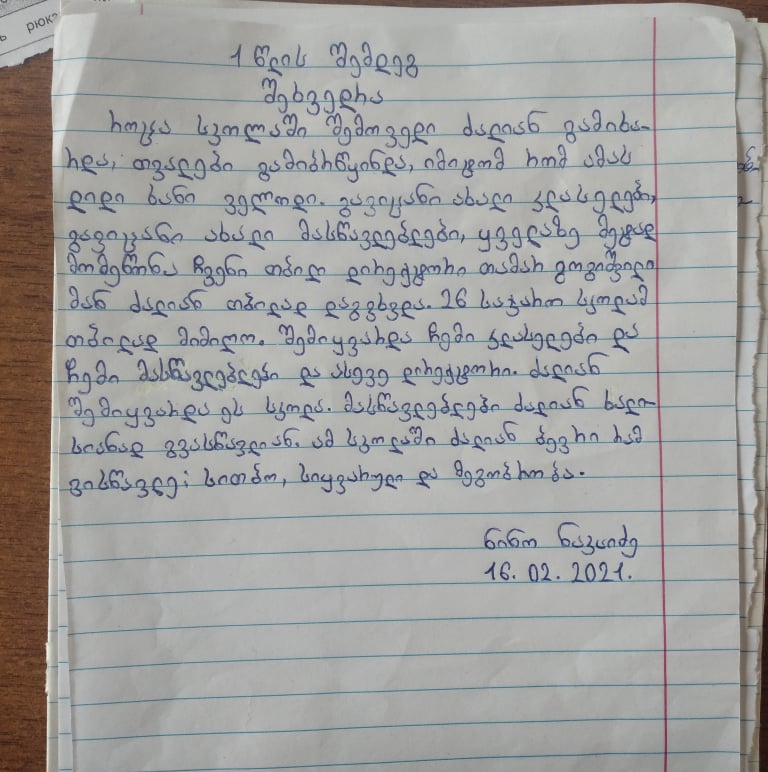 рюкз
ь
1 წლის შემდეგ
შეხვედრა
როცა სკოლაში შემოვედი ძალიან გამიხა-
რდა, თვალები გამიბრწყინდა, იმიტომ რომ ამას
დიდი ხანი ველოდი. გავიცანი ახალი კლასელები,
გავიცანი ახალი მასწავლებლები, ყველაზე მეტად
მომეწონა ჩვენი თბილი დირექტორი თამარ გოგიშვილი
მან ძალიან თბილად დაგვხვდა. 26 საჯარო სკოლამ
თბილად მიმიღო. შემიყვარდა ჩემი კლასელები და
ჩემი მასწავლებლები და ასევე დირექტორი. ძალიან
შემიყვარდა ეს სკოლა. მასწავლებლები ძალიან ხალი-
სიანად გვასწავლიან. ამ სკოლაში ძალიან ბევრი რამ
ვისწავლე: სითბო, სიყვარული და მეგობრობა.
ნინო
16. 02. 2021.